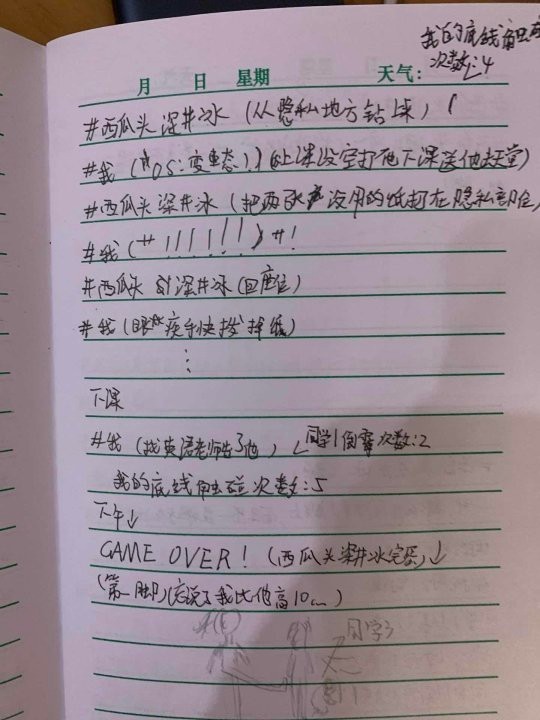 我的底线触碰
次数:4
月 日 星期 天气:
#西瓜头深井冰(从隐私地方钻来)
#我(OS:变态)(上课没空打他下课送他去天堂)
#西瓜头深井冰(把两张没用的纸打在隐私部位)
#我(艹!!!!!!)艹!
#西瓜头深井冰(回座位)
#我(眼疾手快拨掉纸)
⋮
下课
#我(找英语老师告了他) 同学1倒霉次数:2
我的底线触碰次数:5
下午↓
GAME OVER!(西瓜头深井冰完蛋)↓
(第一脚)(忘说了我比他高10cm)
同学3